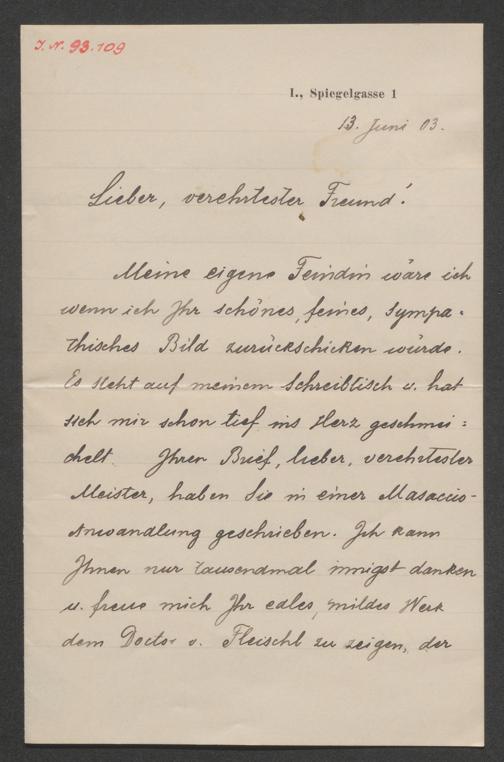 J. N. 93.109
I., Spiegelgasse 1
13. Juni 03.
Lieber, verehrtester Freund!
Meine eigene Feindin wäre ich
wenn ich Ihr schönes, feines, sympa-
thisches Bild zurückschicken würde.
Es steht auf meinem Schreibtisch u. hat
sich mir schon tief ins Herz geschmei:
chelt. Ihren Brief, lieber, verehrtester
Meister, haben Sie in einer Masaccio-
Anwandlung geschrieben. Ich kann
Ihnen nur tausendmal innigst danken
u. freue mich Ihr edles, mildes Werk
dem Doctor v. Fleischl zu zeigen, der